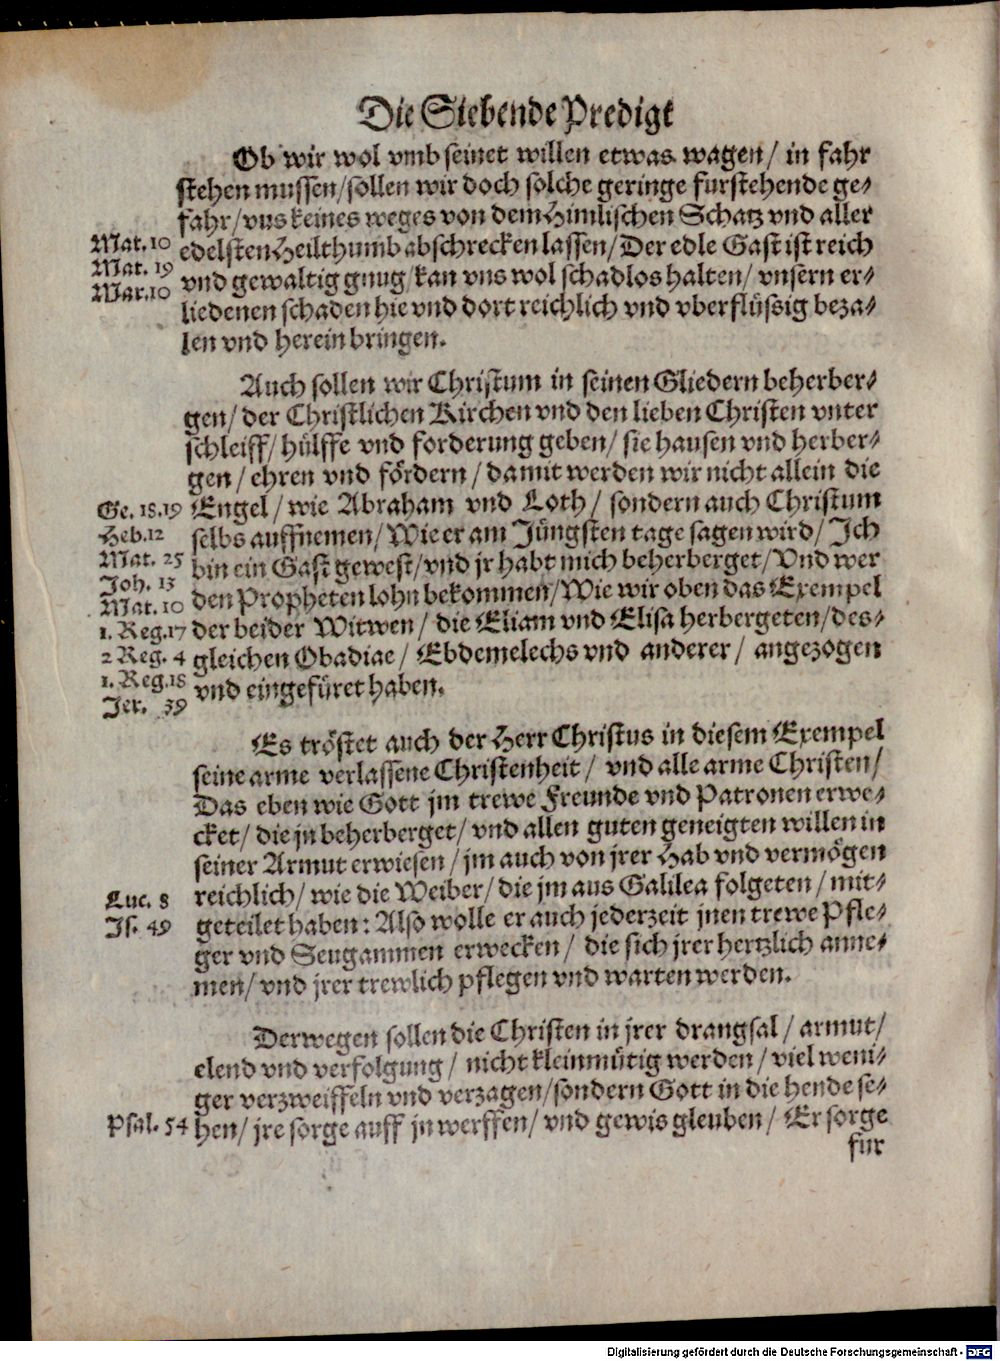 Die Siebende Predigt
Ob wir wol vmb seinet willen etwas wagen/ in fahr
stehen mussen/sollen wir doch solche geringe furstehende ge-
fahr/vns keines weges von dem Himlischen Schatz vnd aller
Mat. 10 edelsten Heilthumb abschrecken lassen/Der edle Gast ist reich
Mat. 19 vnd gewaltig gnug/kan vns wol schadlos halten/ vnsern er-
Mar. 10 liedenen schaden hie vnd dort reichlich vnd vberflüssig beza-
len vnd herein bringen.
Auch sollen wir Christum in seinen Gliedern beherber-
gen/ der Christlichen Kirchen vnd den lieben Christen vnter
schleiff/ hülffe vnd forderung geben/ sie hausen vnd herber-
gen/ ehren vnd fördern/ damit werden wir nicht allein die
Ge. 18.19 Engel/ wie Abraham vnd Loth/ sondern auch Christum
Heb.12 selbs auffnemen/Wie er am Jüngsten tage sagen wird/ Ich
Mat. 25 bin ein Gast gewest/vnd jr habt mich beherberget/Vnd wer
Joh. 13
Mat. 10 den Propheten lohn bekommen/Wie wir oben das Exempel
1. Reg.17 der beider Witwen/ die Eliam vnd Elisa herbergeten/des-
2 Reg. 4 gleichen Obadiae/ Ebdemelechs vnd anderer/ angezogen
1. Reg.18 vnd eingefüret haben.
Jer. 39
Es tröstet auch der Herr Christus in diesem Exempel
seine arme verlassene Christenheit/ vnd alle arme Christen/
Das eben wie Gott jm trewe Freunde vnd Patronen erwe-
cket/ die jn beherberget/ vnd allen guten geneigten willen in
seiner Armut erwiesen/ jm auch von jrer Hab vnd vermögen
Luc. 8 reichlich/ wie die Weiber/ die jm aus Galilea folgeten/ mit-
Js. 49 geteilet haben: Also wolle er auch jederzeit jnen trewe Pfle-
ger vnd Seugammen erwecken/ die sich jrer hertzlich anne-
men/ vnd jrer trewlich pflegen vnd warten werden.
Derwegen sollen die Christen in jrer drangsal/ armut/
elend vnd verfolgung/ nicht kleinmütig werden/ viel weni-
ger verzweiffeln vnd verzagen/sondern Gott in die hende se-
Psal. 54 hen/ jre sorge auff jn werffen/ vnd gewis gleuben/ Er sorge
fur
Digitalisierung gefördert durch die Deutsche Forschungsgemeinschaft - DFG